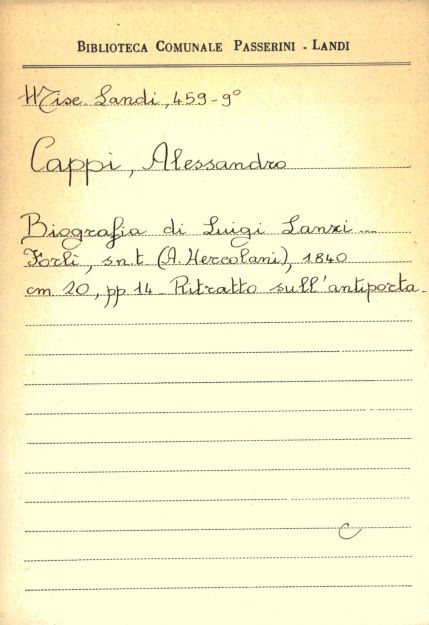 BIBLIOTECA COMUNALE PASSERINI - LANDI
Misc. Landi, 459-9°
Cappi, Alessandro
Biografia di Luigi Lanzi ...
Forlì, s.n.t. (A. Hercolani), 1840
cm 20, pp. 14 - Ritratto sull'antiporta.
C